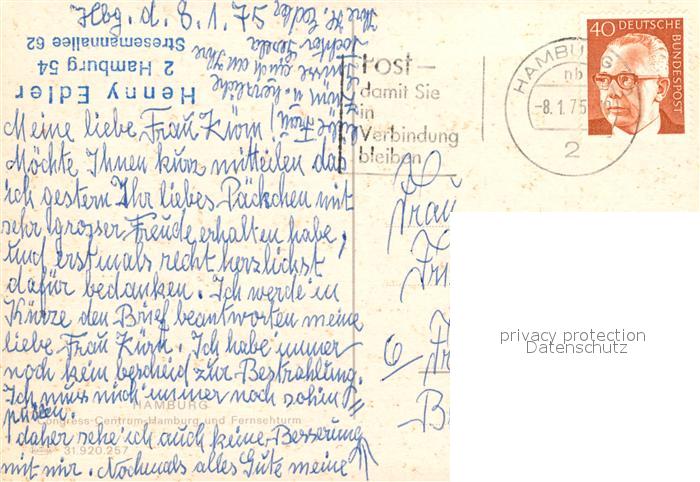 Hbg. d. 8.1.75
Henny Edler
2 Hamburg 54
Stresemannallee 62
Meine liebe Frau Kürn!
Möchte Ihnen kurz mitteilen das
ich gestern Ihr liebes Päckchen mit
sehr grosser Freude erhalten habe,
und erstmals recht herzlichst
dafür bedanken. Ich werde in
Kürze den Brief beantworten meine
liebe Frau Kürn. Ich habe immer
noch kein bescheid zur Bestrahlung.
Ich muss mich immer noch
daher sehe ich auch keine Besserung
mit mir. Nochmals alles Gute meine
liebe Frau
u. herzliche
Grüsse auch an Ihre
Tochter
Ihre H. Edler
HAMBURG
Congress-Centrum Hamburg und Fernsehturm
31.920.257
Post-
damit Sie
in
Verbindung
bleiben
HAMBURG
nb
-8.1.75
2
40 DEUTSCHE
BUNDESPOST
Frau
6
privacy protection
Datenschutz